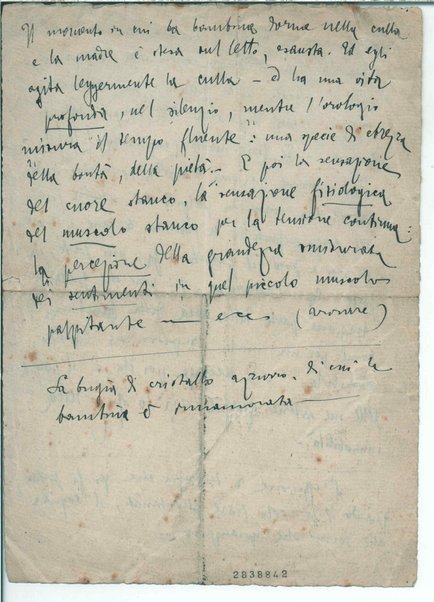 Il momento in cui la bambina dorme nella culla
e la madre è stesa sul letto, esausta. Ed egli
agita leggermente la culla – ed ha una vita
profonda, nel silenzio, mentre l'orologio
misura il tempo fluente: una specie di ebrezza
della bontà, della pietà. – E poi la sensazione
del cuore stanco, la sensazione fisiologica
del muscolo stanco per la tensione continua:
la percezione della grandezza smisurata
dei sentimenti in quel piccolo muscolo
palpitante — ecc. (
La bugia di cristallo azzurro, di cui la
bambina è innamorata —
2838842